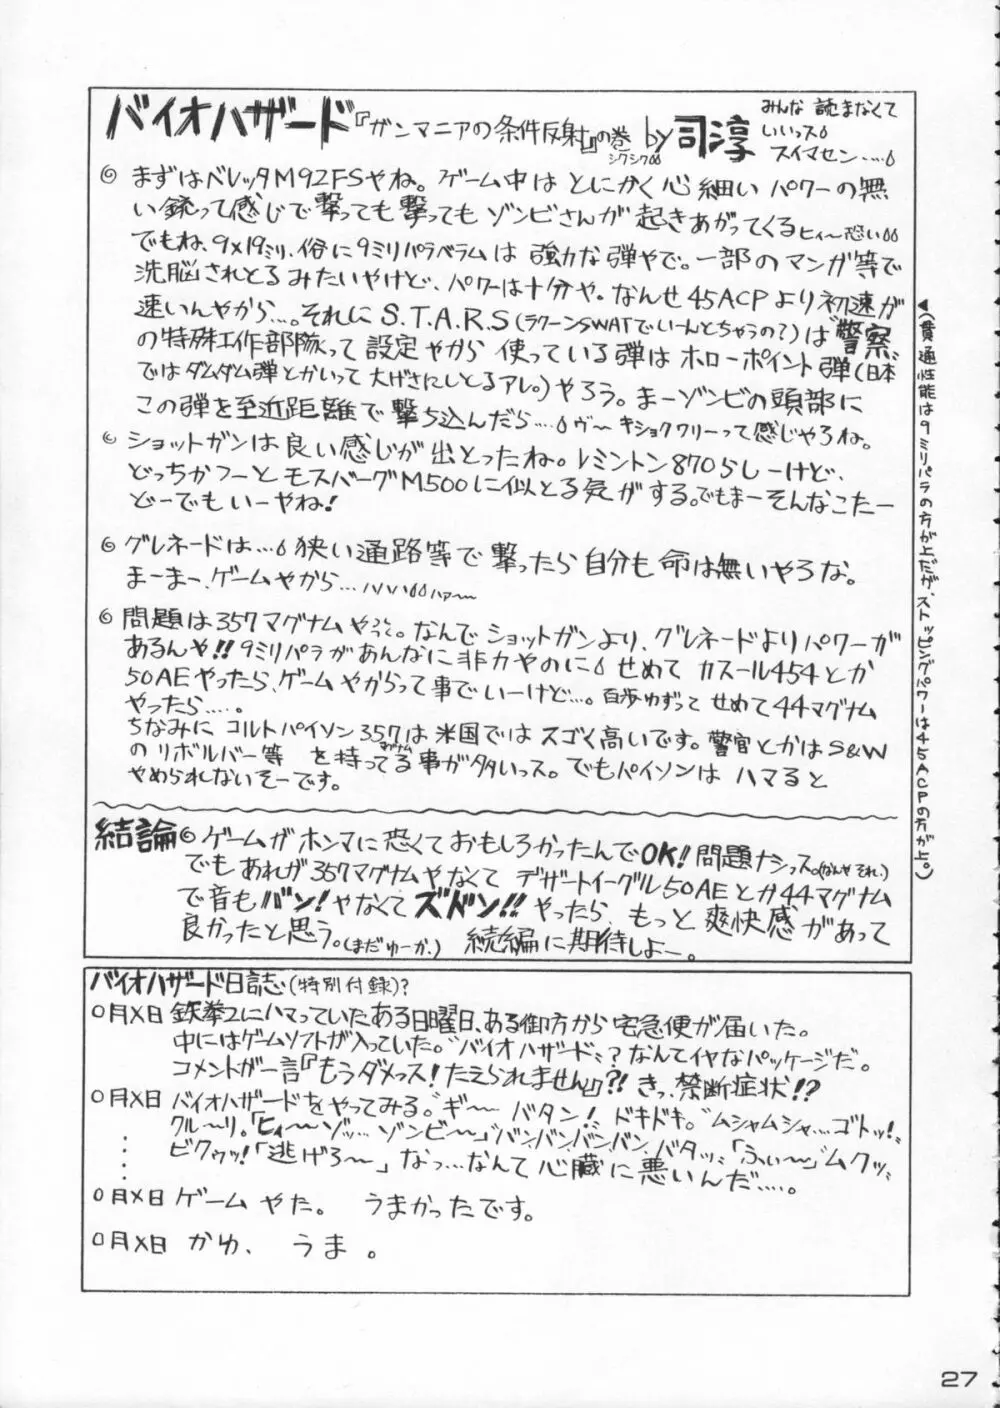 バイオハザード『ガンマニアの条件反射』の巻 by 司淳
シクシク
みんな 読まなくて
いいっス
スイマセン....
まずはベレッタM92FSやね。ゲーム中は とにかく心細い パワーの無
い銃って感じで撃っても撃っても ゾンビさんが 起きあがってくる ヒィ〜恐い
でもね、9×19ミリ、俗に9ミリパラベラムは 強力な弾やで。一部のマンガ等で
洗脳されとるみたいやけど、パワーは十分や。なんせ45ACPより初速が
速いんやから...。それにS.T.A.R.S(ラクーンSWATでいーんとちゃうの?)は"警察"
の特殊工作部隊って 設定やから 使っている弾は ホローポイント弾(日本
ではダムダム弾とかいって 大げさにしとるアレ。)やろう。まーゾンビの頭部に
この弾を至近距離で撃ち込んだら.... ヴ〜 キショクワリーって感じやろね。
ショットガンは良い感じが出とったね。レミントン870らしーけど、
どっちかつーと モスバーグM500に似とる気がする。でもまーそんなこたー
どーでもいーやね!
グレネードは... 狭い通路等で 撃ったら 自分も 命は無いやろな。
まーまー、ゲームやから... ハハハ ハァ〜
問題は357マグナムやって。なんでショットガンより、グレネードよりパワーが
あるんや!! 9ミリパラがあんなに非力やのに せめて カスール454とか
50AEやったら、ゲームやからって事でいーけど...。百歩ゆずって せめて44マグナム
やったら....。
ちなみに コルトパイソン357は 米国では スゴく高いです。警官とかはS&W
のリボルバー等 を持ってる事が多いっス。でもパイソンは ハマると
やめられないそーです。
◀(貫通性能は9ミリパラの方が上だが、ストッピングパワーは45ACPの方が上。)
結論 ゲームがホンマに恐くておもしろかったんでOK! 問題ナシっス。(なんや それ。)
でも あれが357マグナムやなくて デザートイーグル50AEとか44マグナム
で音もバン!やなくてズドン!! やったら、もっと 爽快感があって
良かったと思う。(まだゆーか。) 続編に期待しよー。
バイオハザード日誌(特別付録)?
0月X日 鉄拳2にハマっていたある日曜日、ある御方から 宅急便が届いた。
中にはゲームソフトが入っていた。"バイオハザード"? なんてイヤなパッケージだ。
コメントが一言『もうダメっス!たえられません』?! きっ、禁断症状!?
0月X日 バイオハザードをやってみる。"ギ〜 バタン!" ドキドキ。"ムシャムシャ...ゴトッ!"
クル〜リ。「ヒィ〜ゾッ... ゾンビ〜」"バンバンバンバン、バタッ"「ふぃ〜」"ムクッ"
ビクゥッ!「逃げろ〜」なっ...なんて 心臓に悪いんだ....。
0月X日 ゲーム やた。 うまかったです。
0月X日 かゆ、 うま 。
27